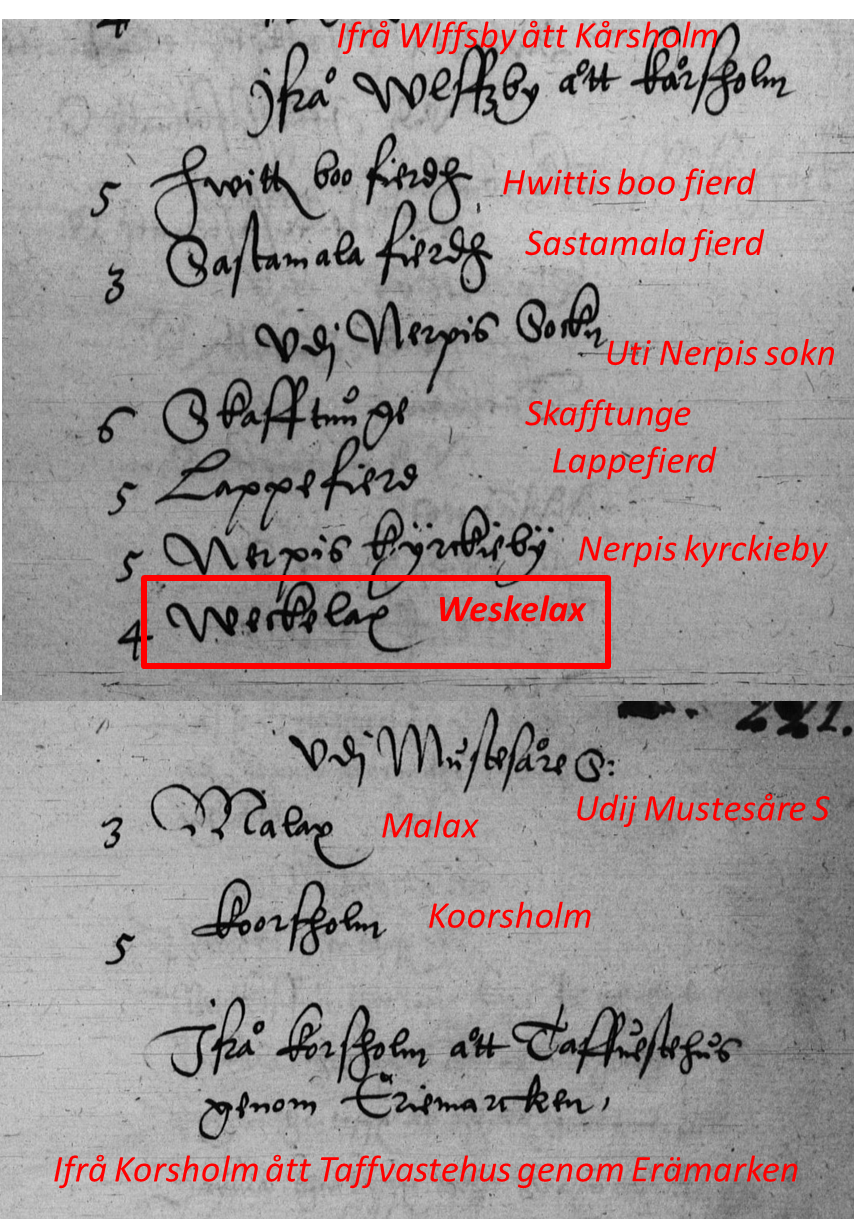 Ifrå Wlffsby ått Kårsholm
Ifrå Wlffzby ått kårsholm
5 Hwittis boo fierdh Hwittis boo fierd
3 Sastamala fierdh Sastamala fierd
Vdj Nerpis Sockn Uti Nerpis sokn
6 Skafftunge Skafftunge
5 Lappefierd Lappefierd
5 Nerpis kÿrckiebÿ Nerpis kyrckieby
4 Weskelax Weskelax
221.
Vdj Mustesåre S:
3 Malax Malax Udij Mustesåre S
5 koorsholm Koorsholm
Ifrå korsholm ått Taffuestehus
genom Eriemarcken,
Ifrå Korsholm ått Taffvastehus genom Erämarken